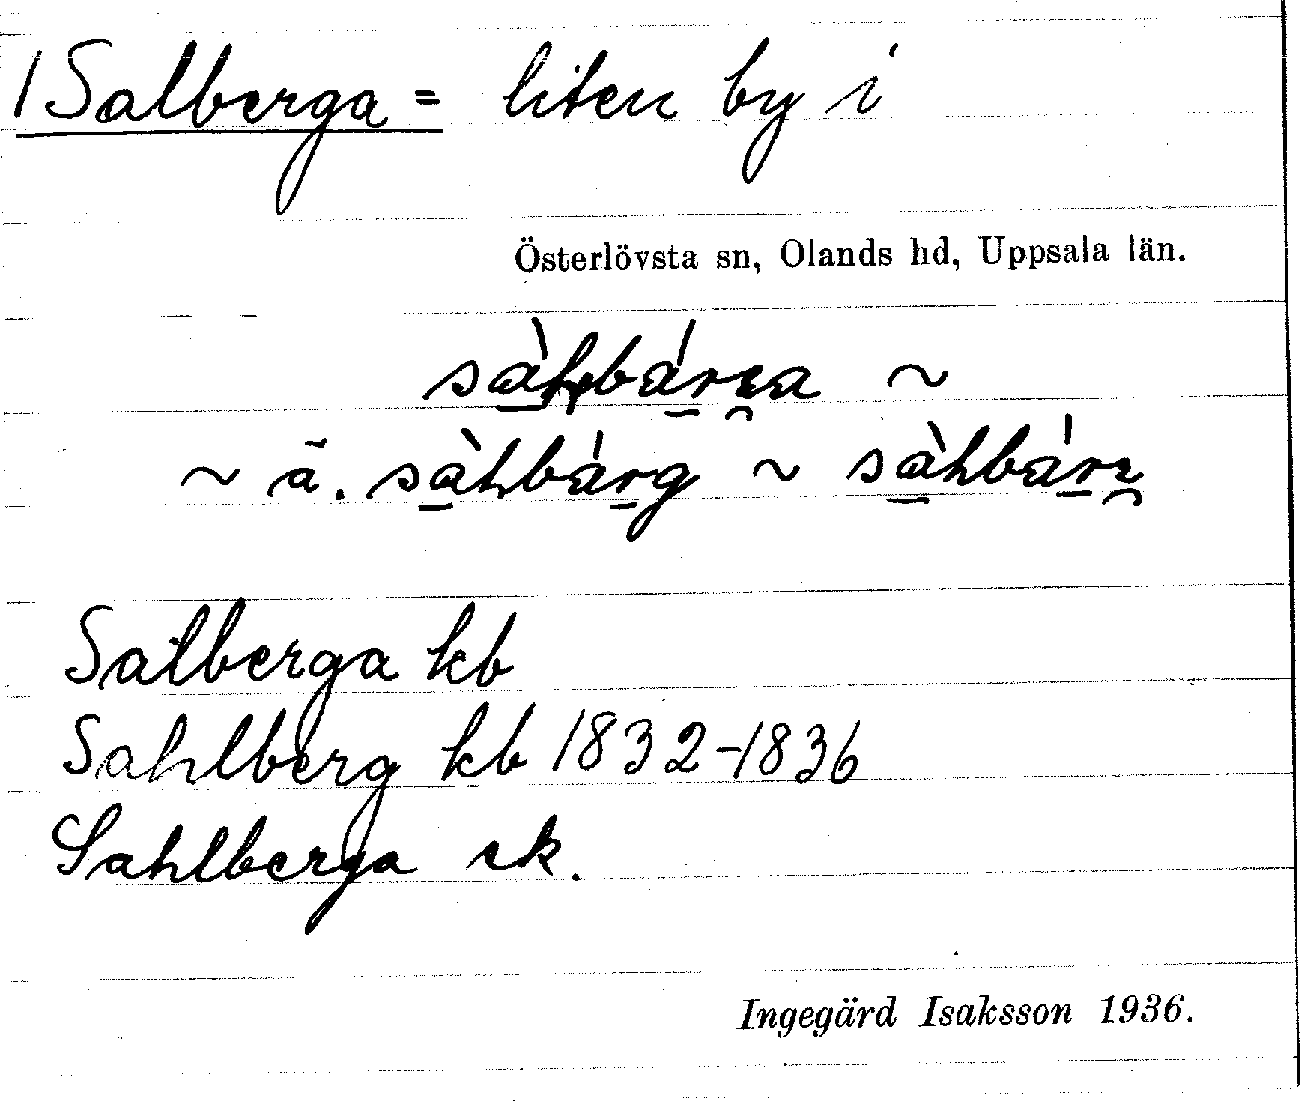 1 Salberga = liten by i
Österlövsta sn, Olands hd, Uppsala län.
~
~ ä. ~
Salberga kb
Sahlberg kb 1832-1836
Sahlberga ek.
Ingegärd Isaksson 1936.